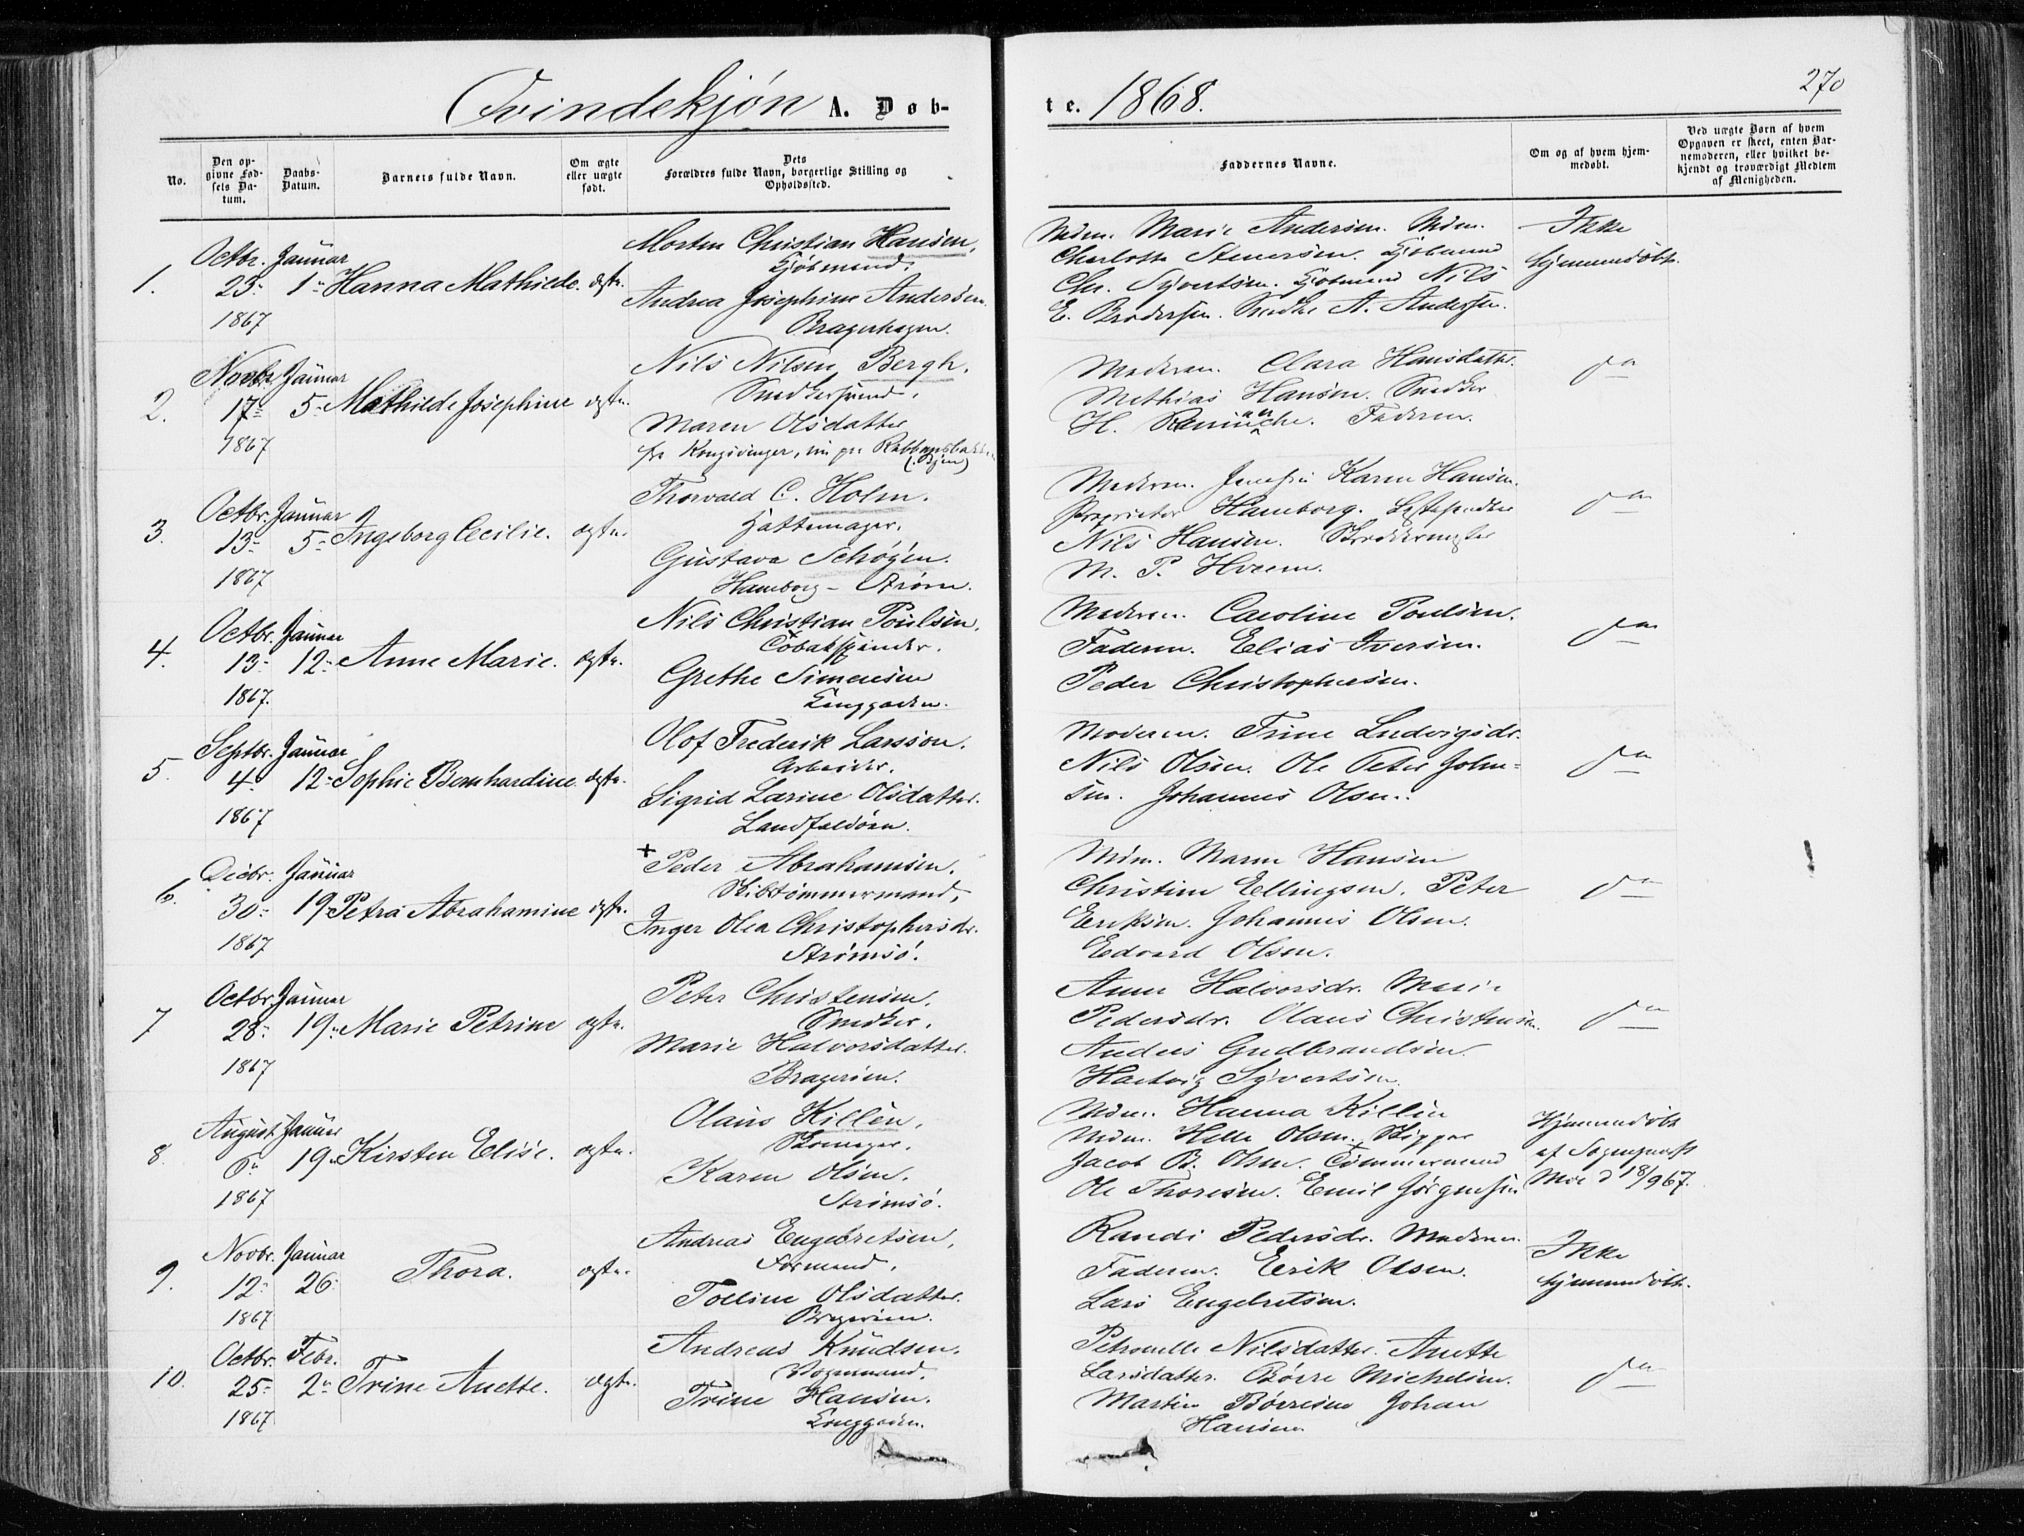 Qvindekjøn A. Døb-
te. 1868.
270
No.
Den op-
givne Fød-
sels Da-
tum.
Daabs-
Datum.
Barnets fulde Navn.
Om ægte
eller uægte
født.
Dets
Forældres fulde Navn, borgerlige Stilling og
Opholdssted.
Faddernes Navne.
Om og af hvem hjem-
medøbt.
Ved uægte Børn af hvem
Opgaven er skeet, enten Bar-
nemoderen, eller hvilket be-
kjendt og troværdigt Medlem
af Menigheden.
1.
Octbr. 23 1867
Januar 1
Hanna Mathilde.
ægte.
Morten Christian Hansen,
Kjøbmand.
Andrea Josephine Andersen.
Bragerhagen.
Mdm. Marie Andersen. Mdm.
Charlotte Steuersen. Kjøbmand
Chr. Syvertsen. Kjøbmand Nils
E. Brodersen. Snedker A. Andersen.
Ikke
hjemmedøbt.
2.
Novbr. 17 1867
Januar 5
Mathilde Josephine
ægte.
Nils Nilsen Bergh.
Snedkersvend,
Maren Olsdatter
fra Kongsvinger, nu paa
Moderen. Clara Hansdatter.
Mathias Hansen. Snedker
H. Faderen.
do
3.
Octbr. 13 1867
Januar 5
Ingeborg Cecilie.
ægte.
Thorvald C. Holm.
Hattemager.
Gustava Schøyen.
Hamborg -Ørøen.
Moderen. Karen Hansen.
Proprietær Hamborg.
Nils Hansen. Skreddermester
M. P. Hveem.
do
4.
Octbr. 13 1867.
Januar 12
Anne Marie.
ægte.
Nils Christian Poulsen,
Tobakspinder.
Grethe Simensen
Langgaden.
Moderen. Caroline Poulsen.
Faderen. Elias Iversen.
Peder Christophersen.
do
5.
Septbr. 4 1867
Januar 12
Sophie Bernhardine
ægte.
Olof Frederik Larsson.
Arbeider.
Sigrid Larine Olsdatter.
Landfaldøen.
Moderen. Trine Ludvigsdr.
Nils Olsen. Ole Peter John-
sen. Johannes Olsen.
do
6.
Decbr. 30 1867
Januar 19
Petra Abrahamine
ægte.
+ Peder Abrahamsen.
Skibtømmermand,
Inger Olea Christophersdr.
Strømsø.
Mdm. Maren Hansen
Christine Ellingsen. Peter
Eriksen. Johannes Olsen.
Edvard Olsen.
do
7
Octbr. 28 1867
Januar 19
Marie Petrine
ægte.
Peter Christensen.
Snedker.
Marie Halvorsdatter.
Bragerøen.
Anne Halvorsdr. Marie
Pedersdr. Olaus Christensen.
Anders Gudbrandsen.
Hartvig Syvertsen.
do
8.
August 6 1867
Januar 19
Kirsten Elise.
ægte.
Olaus Killèn.
Skomager.
Karen Olsen.
Strømsø.
Mdm. Hanna Killèn
Mdm. Helle Olsen. Skipper
Jacob B. Olsen. Tømmermand
Ole Thoresen. Emil Jørgensen
Hjemmedøbt
af Sognepræst
Moe d 18/9 67.
9.
Novbr. 12 1867
Januar 26
Thora.
ægte.
Andreas Engebretsen,
Formand.
Olsdatter.
Bragerøen.
Randi Pedersdr. Moderen.
Faderen. Erik Olsen.
Lars Engebretsen.
Ikke
hjemmedøbt.
10.
Octbr. 25 1867
Febr. 2
Trine Anette.
ægte.
Andreas Knudsen.
Vognmand.
Trine Hansen.
Langgaden.
Petronelle Nilsdatter. Anette
Larsdatter. Børre Michelsen.
Martin Børresen Johan
Hansen
do